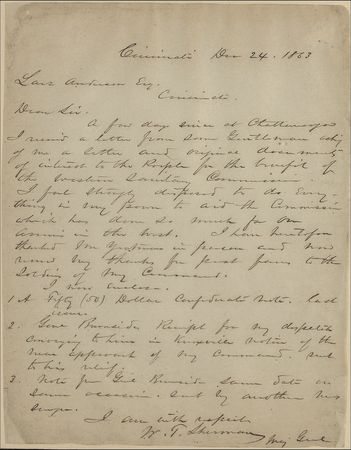 Cincinnati Dec 24. 1863
Larz Anderson Esq.
Cincinnati.
Dear Sir.
A few days since at Chattanooga
I received a letter from some Gentlemen asking
of me a letter and original documents
of interest to the People for the benefit of
the Western Sanitary Commission.
I feel strongly disposed to do every
thing in my power to aid the Commission
which has done so much for our
Armies in the West. I have heretofore
thanked in person and now
renew my thanks for past favors to the
Soldiers of my Command.
I now enclose.
1 A Fifty (50) Dollar Confederate Note. last
issue.
2. Genl Burnsides Receipt for my despatch
conveying to him in Knoxville notice of the
near approach of my Command. sent
to his relief.
3. Note from Genl Burnside same date on
same occasion. sent by another
I am with respect
W. T. Sherman
Maj Genl